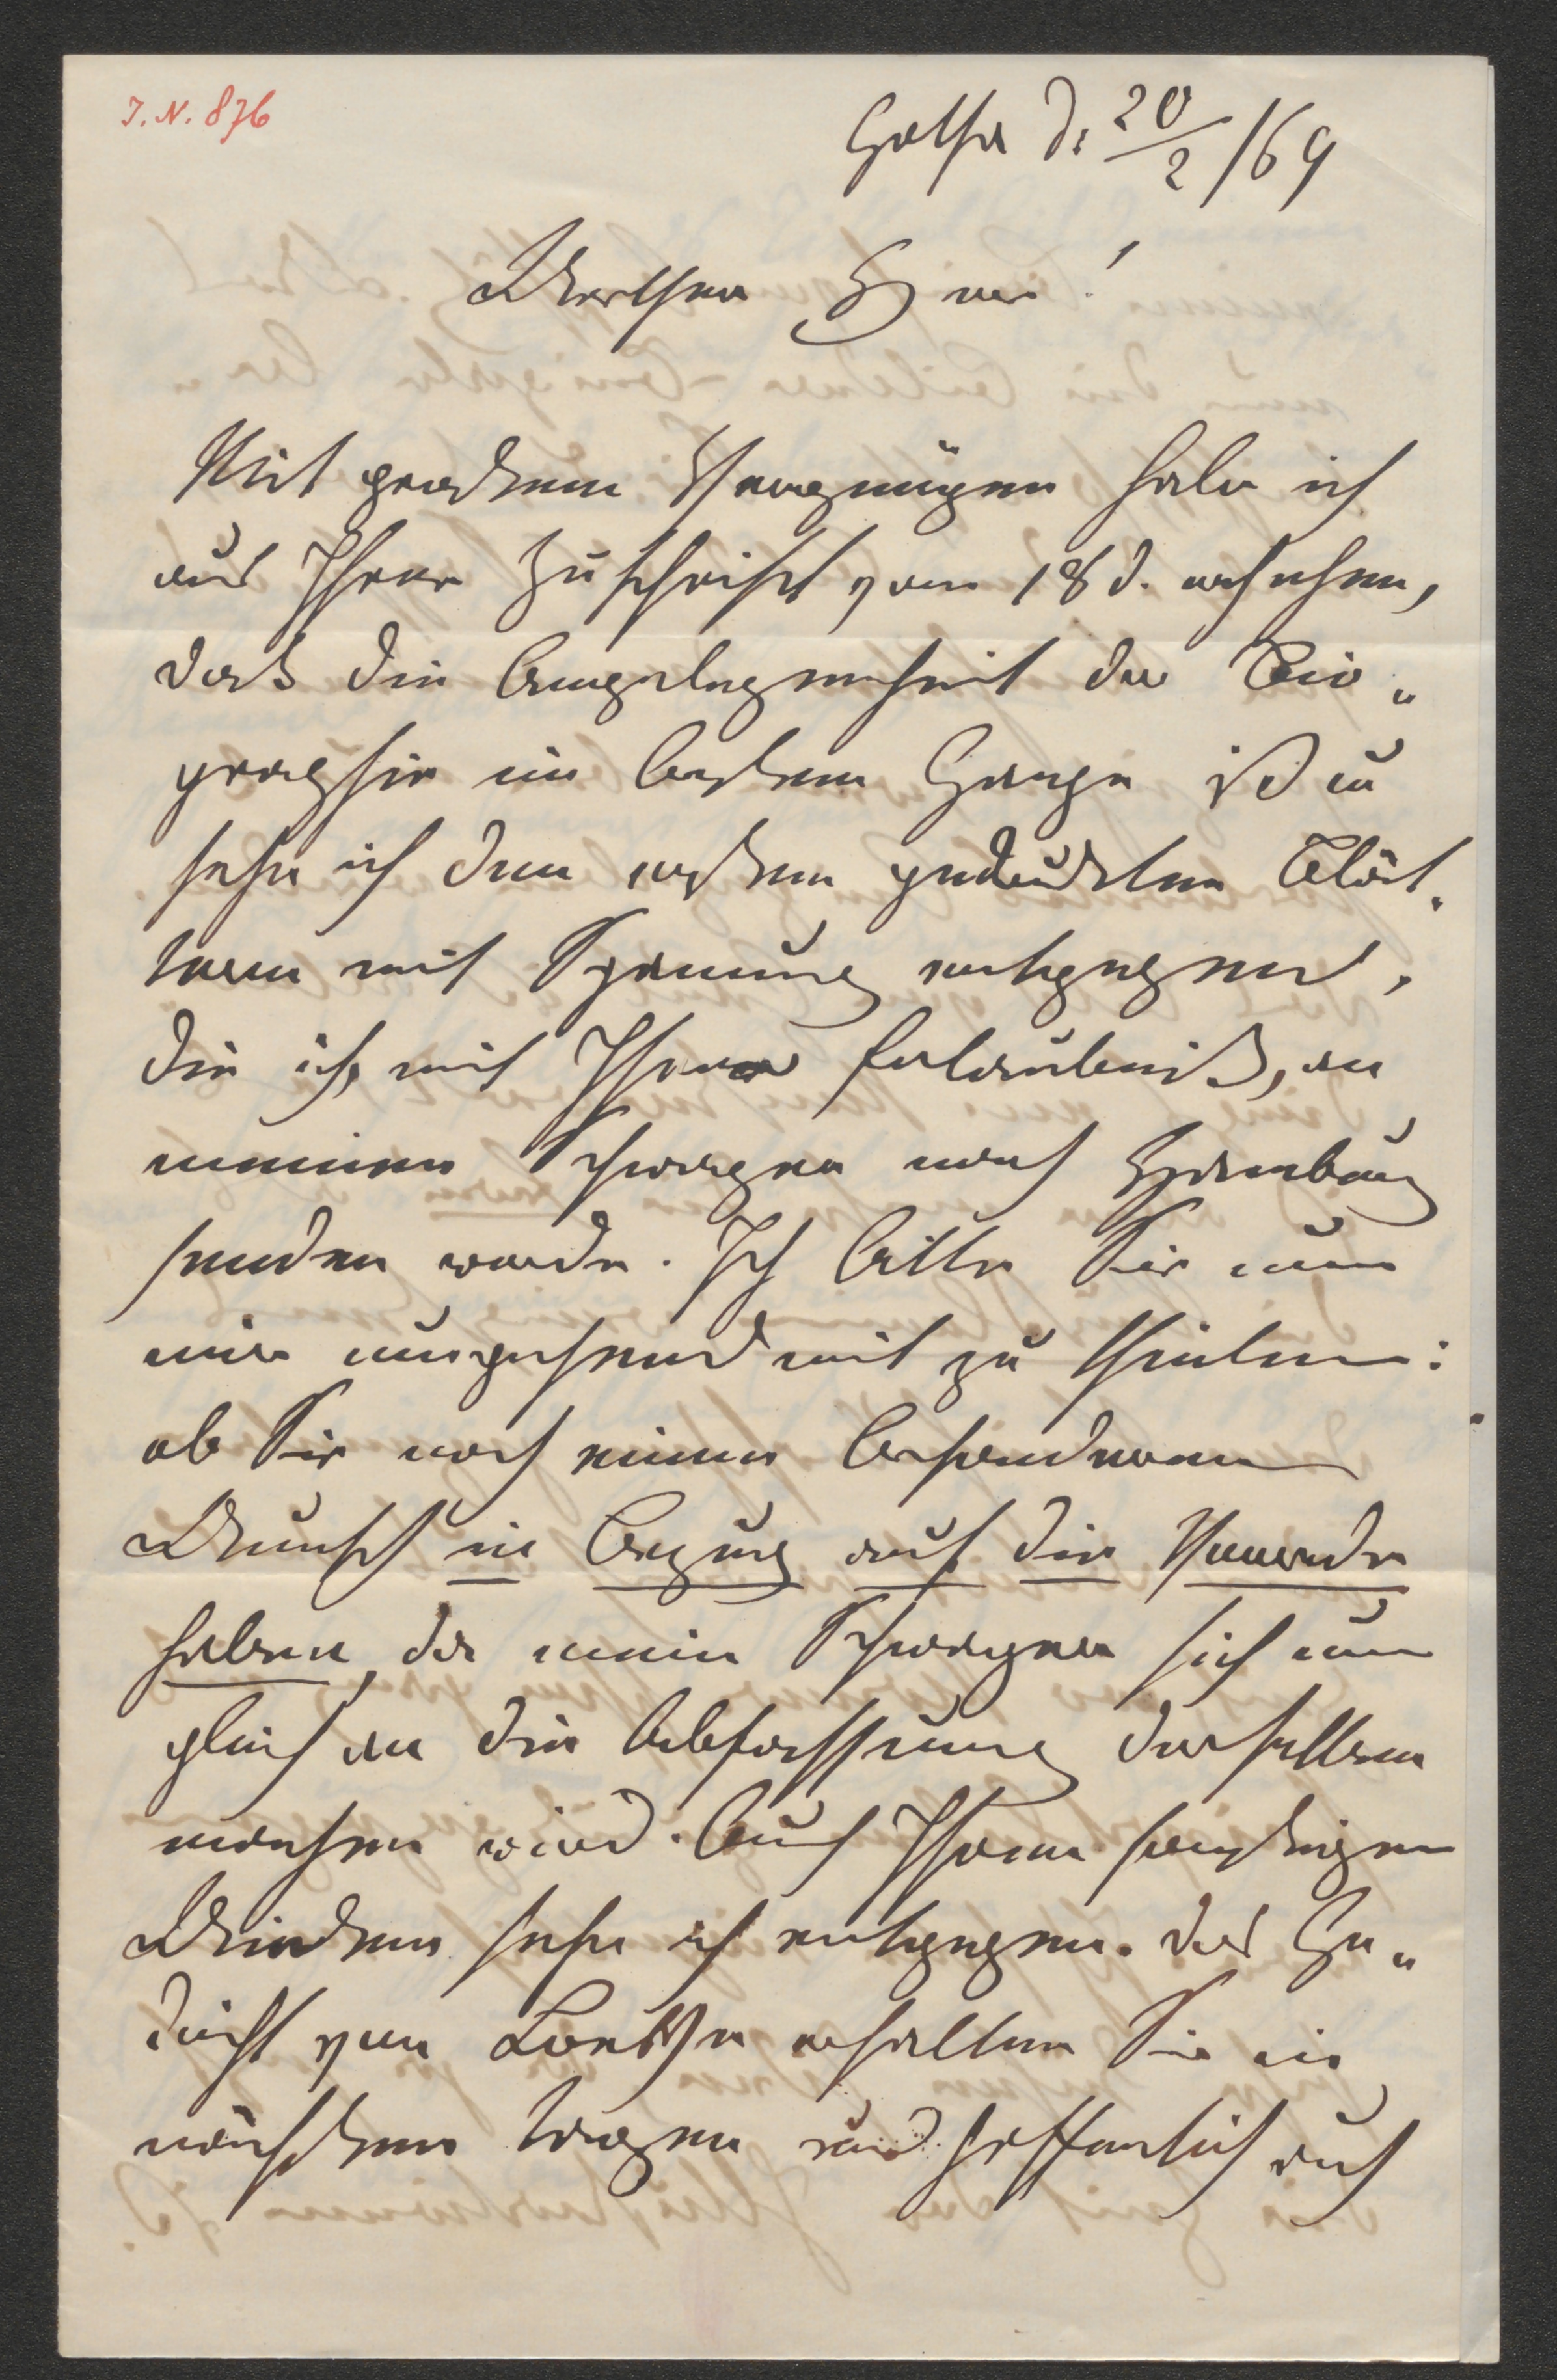 J. N. 876
Gotha d: 20/2 /69
Werther Herr!
Mit großem Vergnügen habe ich
aus Ihrer Zuschrift vom 18 d. ersehen,
daß die Angelegenheit der Bio„
graphie im besten Gange ist u
sehe ich den ersten gedruckten Blät„
tern mit Spannung entgegen,
die ich, mit Ihrer Erlaubniß, an
meinen Schwager nach Hamburg
senden werde. Ich bitte Sie nun
mir umgehend mit zu theilen:
ob Sie noch einen besonderen
Wunsch in Bezug auf die Vorrede
haben, da mein Schwager sich nun
gleich an die Abfassung derselben
machen wird. Auch Ihren sonstigen
Winken sehe ich entgegen. Das Ge„
dicht von Loethe erhalten Sie in
nächsten Tagen und hoffentlich auch